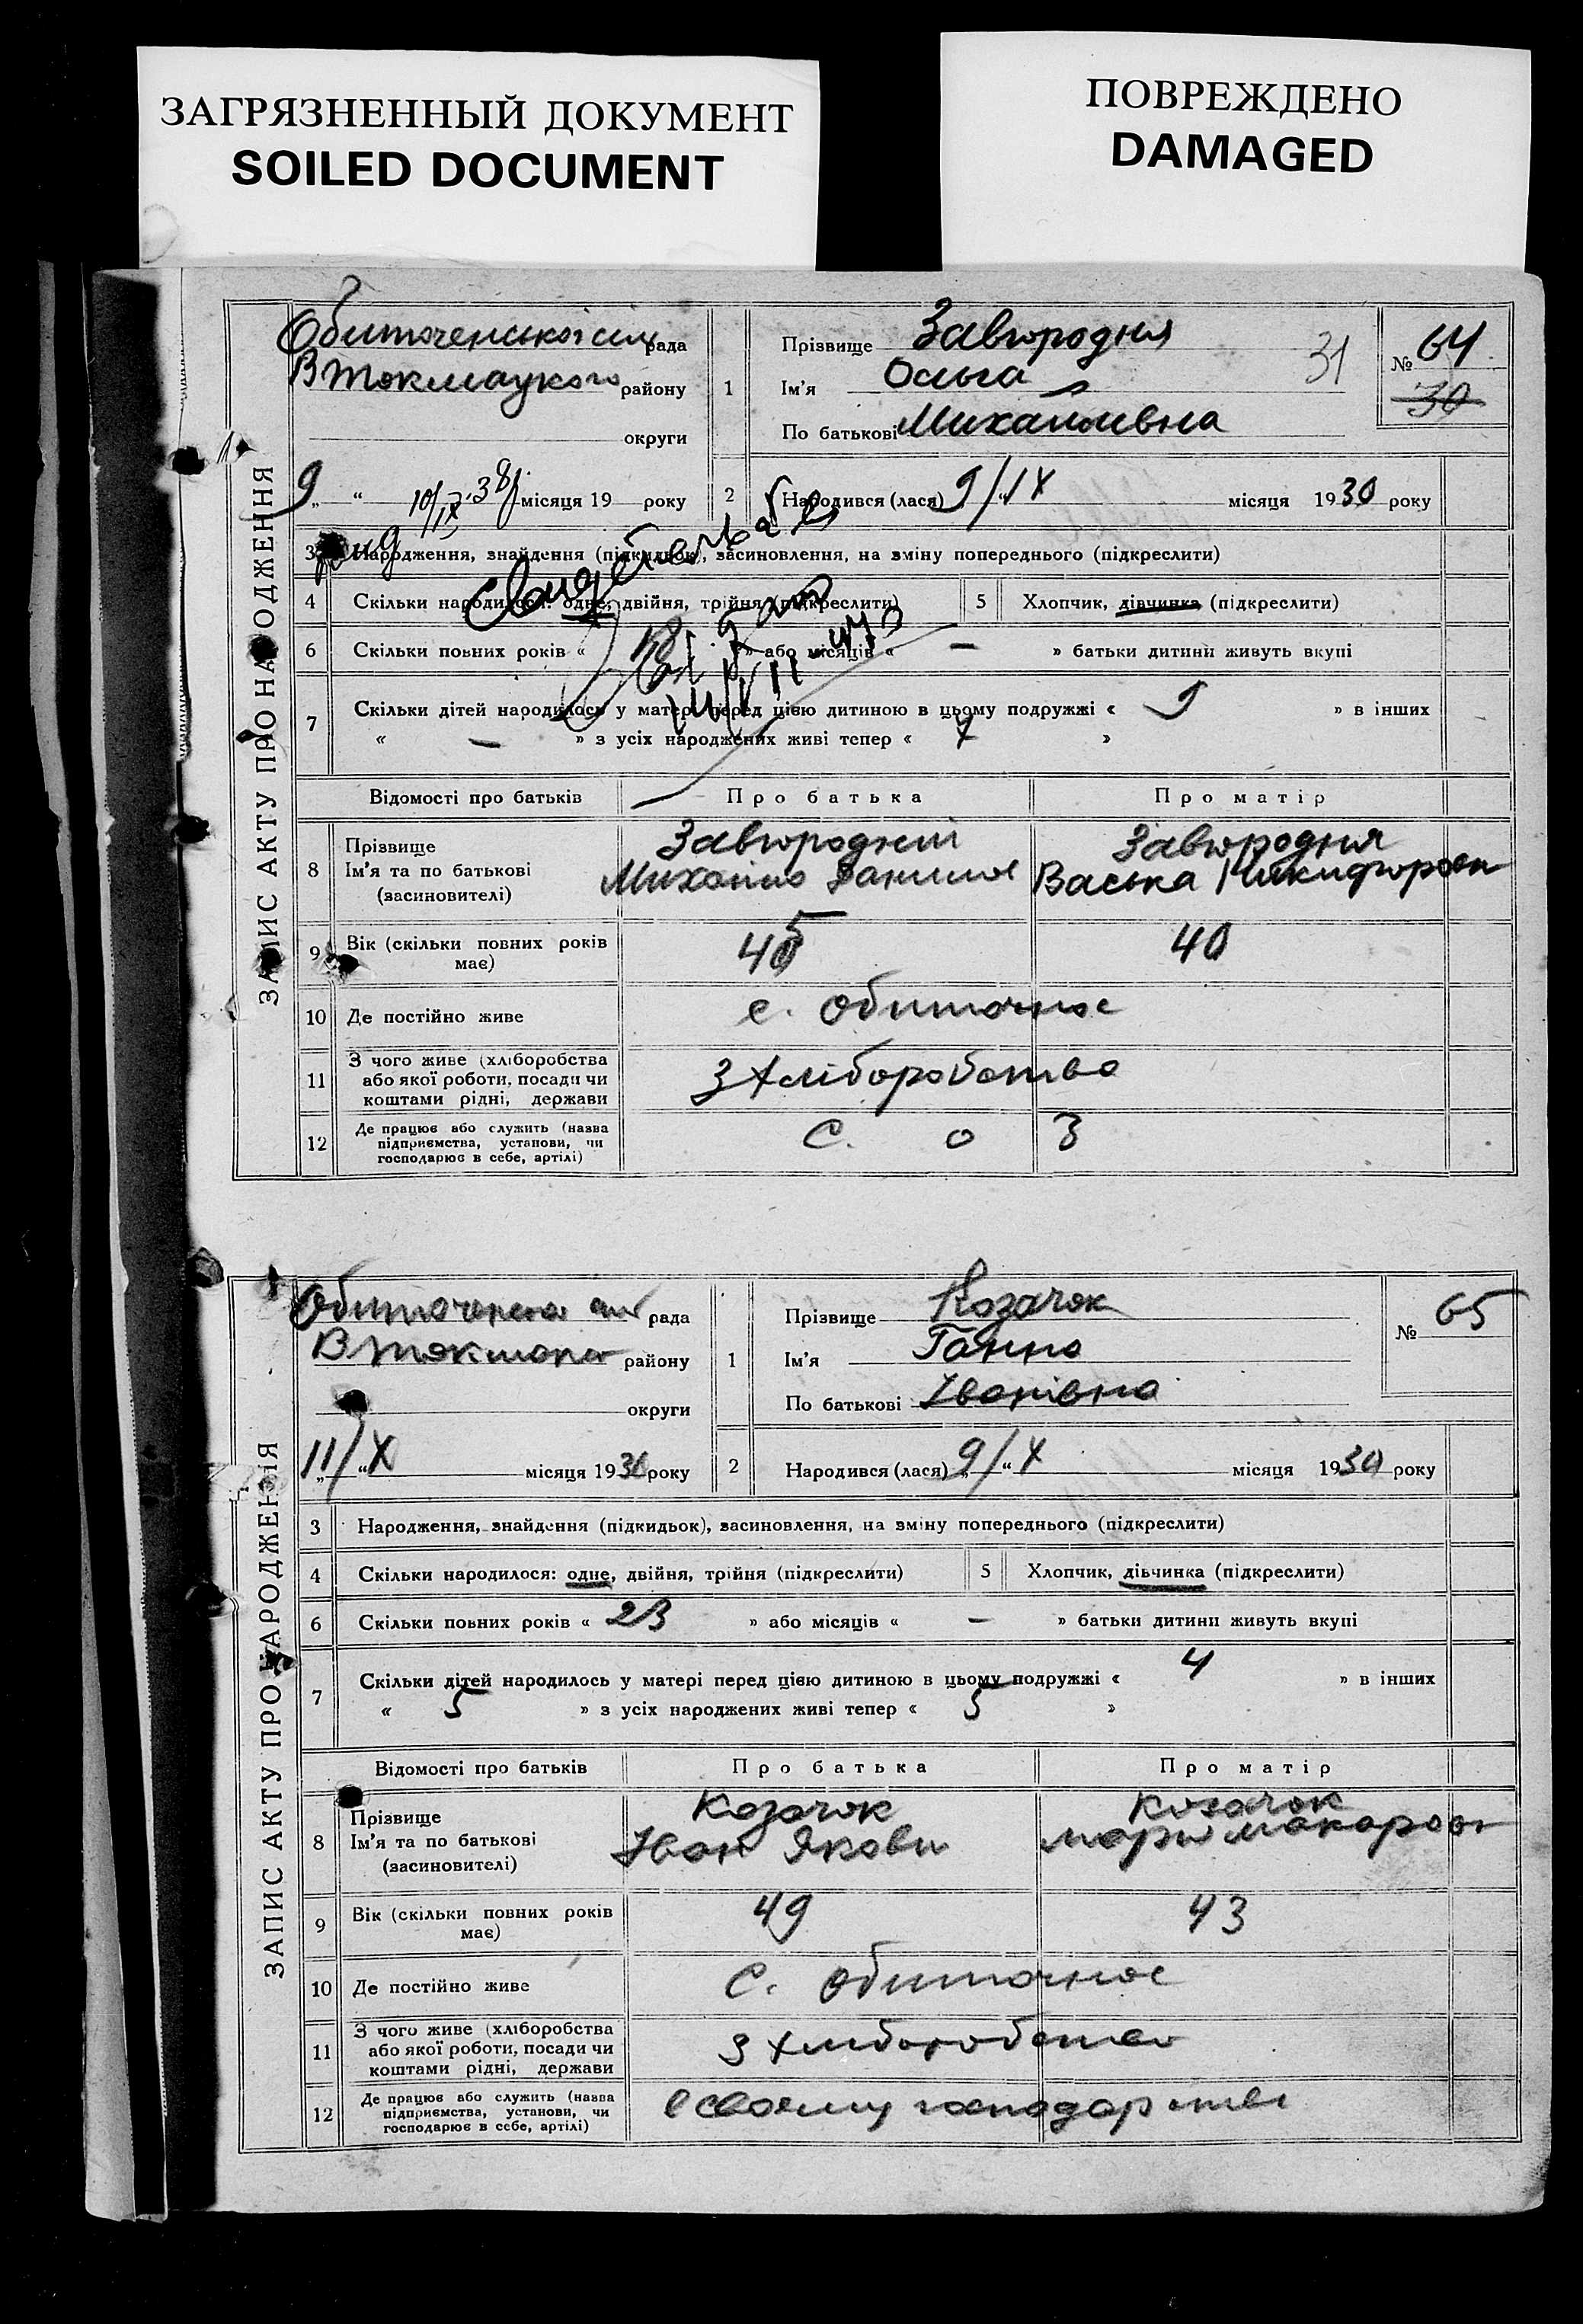 ЗАГРЯЗНЕННЫЙ ДОКУМЕНТ
SOILED DOCUMENT
ПОВРЕЖДЕНО
DAMAGED
ЗАПИС АКТУ ПРО НАРОДЖЕННЯ
Обиточенської сіл рада
району
округи
1
Прізвище Завгородня
Ім'я Ольга
По батькові Михайлівна
31
№ 64
30
9 „ “ місяця 19 року
2 Народився (лася) 9/IX “ місяця 1930 року
3 Народження, знайдення (підкидьок), засиновлення, на зміну попереднього (підкреслити)
4 Скільки народилося: одне, двійня, трійня (підкреслити)
5 Хлопчик, дівчинка (підкреслити)
6 Скільки повних років « » або місяців « — » батьки дитини живуть вкупі
7 Скільки дітей народилось у матері перед цією дитиною в цьому подружжі « 9 » в інших
« — » з усіх народжених живі тепер « 7 »
Відомості про батьків
Про батька
Про матір
8
Прізвище
Ім'я та по батькові
(засиновителі)
Завгородній
Михайло Данилов
Завгородня
Васька Никифоровн
9 Вік (скільки повних років
має)
45
40
10 Де постійно живе
с. Обиточное
11
З чого живе (хліборобства
або якої роботи, посади чи
коштами рідні, держави
З Хліборобства
12
Де працює або служить (назва
підприємства, установи, чи
господарює в себе, артілі)
С. О З
ЗАПИС АКТУ ПРО НАРОДЖЕННЯ
рада
району
округи
1
Прізвище Козачок
Ім'я Ганна
По батькові Іванівна
№ 65
11/X „ “ місяця 1930 року
2 Народився (лася) 9/X “ місяця 1930 року
3 Народження, знайдення (підкидьок), засиновлення, на зміну попереднього (підкреслити)
4 Скільки народилося: одне, двійня, трійня (підкреслити)
5 Хлопчик, дівчинка (підкреслити)
6 Скільки повних років « 23 » або місяців « — » батьки дитини живуть вкупі
7 Скільки дітей народилось у матері перед цією дитиною в цьому подружжі « 4 » в інших
« 5 » з усіх народжених живі тепер « 5 »
Відомості про батьків
Про батька
Про матір
8
Прізвище
Ім'я та по батькові
(засиновителі)
Козачок
Іван Якови
Козачок
Марія Макаровн
9 Вік (скільки повних років
має)
49
43
10 Де постійно живе
С. Обиточное
11
З чого живе (хліборобства
або якої роботи, посади чи
коштами рідні, держави
З Хліборобства
12
Де працює або служить (назва
підприємства, установи, чи
господарює в себе, артілі)
в своєму господарстві